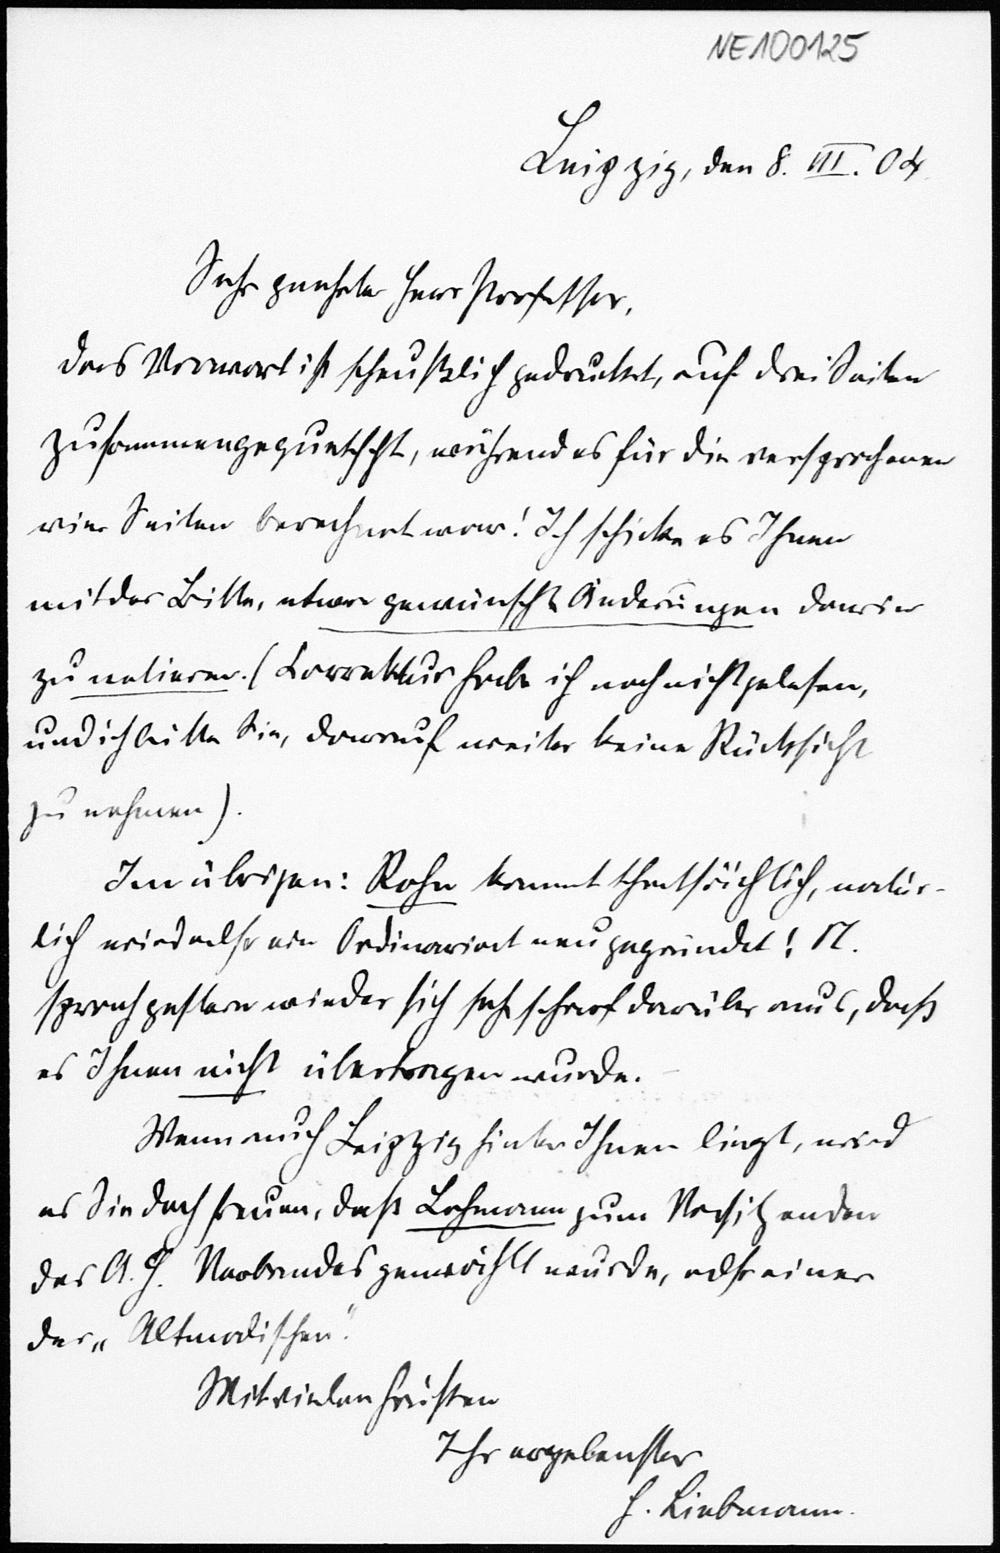 NE100125
Leipzig, den 8. III. 04
Sehr geehrter Herr Professor,
das Vorwort ist scheußlich gedruckt, auf drei Seiten
zusammengequetscht, während es für die versprochenen
vier Seiten berechnet war! Ich schicke es Ihnen
mit der Bitte, etwa gewünschte Änderungen darin
zu notieren. (Correktur habe ich noch nicht gelesen,
und ich bitte Sie, darauf weiter keine Rücksicht
zu nehmen).
Im übrigen: Rohn kommt thatsächlich, natür-
lich wird also ein Ordinariat neu gegründet! N.
sprach gestern wieder sich sehr scharf darüber aus, daß
es Ihnen nicht übertragen wurde.
Wenn auch Leipzig hinter Ihnen liegt, wird
es Sie doch freuen, daß Lohmann zum Vorsitzenden
des A. H. Verbandes gewählt wurde, also einer
der „Altmodischen".
Mit vielen Grüßen
Ihr ergebenster
H. Liebmann.